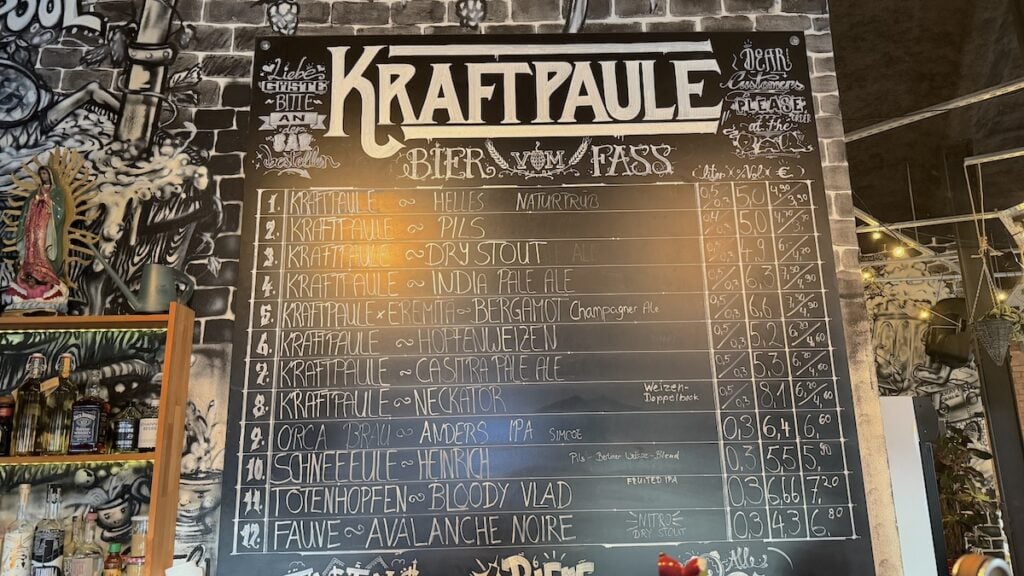 Liebe
Gäste
BITTE
AN
der
BAR
bestellen
KRAFTPAULE
DEAR
Customers
PLEASE
ORDER
at the
BIER VOM FASS
Liter x % Vol x €
1. KRAFTPAULE ~ HELLES NATURTRÜB 0,5/0,3 5,0
2. KRAFTPAULE ~ PILS 5,0
3. KRAFTPAULE ~ DRY STOUT
4. KRAFTPAULE ~ INDIA PALE ALE 6,3
5. KRAFTPAULE x EREMITA ~ BERGAMOT Champagner Ale 6,6
6. KRAFTPAULE ~ HOPFENWEIZEN 5,2
7. KRAFTPAULE ~ CASTRA PALE ALE 5,3
8. KRAFTPAULE ~ NECKATOR Weizen-Doppelbock 8,1
9. ORCA BRAU ~ ANDERS IPA SIMCOE 0,3 6,4 6,60
10. SCHNEEEULE ~ HEINRICH Pils - Berliner Weisse - Blend 0,3 5,5 5,80
11. TOTENHOPFEN ~ BLOODY VLAD FRUITED IPA 0,3 6,66 7,20
12. FAUVE ~ AVALANCHE NOIRE NITRO DRY STOUT 0,3 4,3 6,80
BIERE